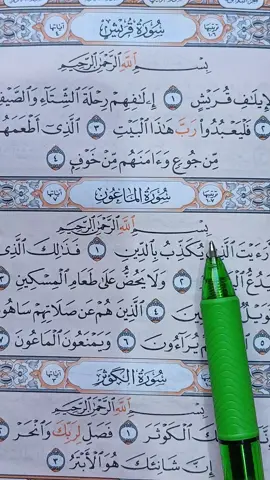 سُورَةُ قُرَيْشٍ
بِسْمِ ٱللَّهِ ٱلرَّحْمَٰنِ ٱلرَّحِيمِ
لِإِيلَٰفِ قُرَيْشٍ ١ إِۦلَٰفِهِمْ رِحْلَةَ ٱلشِّتَآءِ وَٱلصَّيْفِ
٢ فَلْيَعْبُدُوا۟ رَبَّ هَٰذَا ٱلْبَيْتِ ٣ ٱلَّذِىٓ أَطْعَمَهُم
مِّن جُوعٍ وَءَامَنَهُم مِّنْ خَوْفٍۭ ٤
سُورَةُ ٱلْمَاعُونِ
بِسْمِ ٱللَّهِ ٱلرَّحْمَٰنِ ٱلرَّحِيمِ
يُكَذِّبُ بِٱلدِّينِ ١ فَذَٰلِكَ ٱلَّذِى
يَدُعُّ ٢ وَلَا يَحُضُّ عَلَىٰ طَعَامِ ٱلْمِسْكِينِ
٤ ٱلَّذِينَ هُمْ عَن صَلَاتِهِمْ سَاهُونَ
٥ يُرَآءُونَ ٦ وَيَمْنَعُونَ ٱلْمَاعُونَ ٧
سُورَةُ ٱلْكَوْثَرِ
بِسْمِ ٱللَّهِ ٱلرَّحْمَٰنِ ٱلرَّحِيمِ
ٱلْكَوْثَرَ ١ فَصَلِّ لِرَبِّكَ وَٱنْحَرْ ٢
إِنَّ شَانِئَكَ هُوَ ٱلْأَبْتَرُ ٣